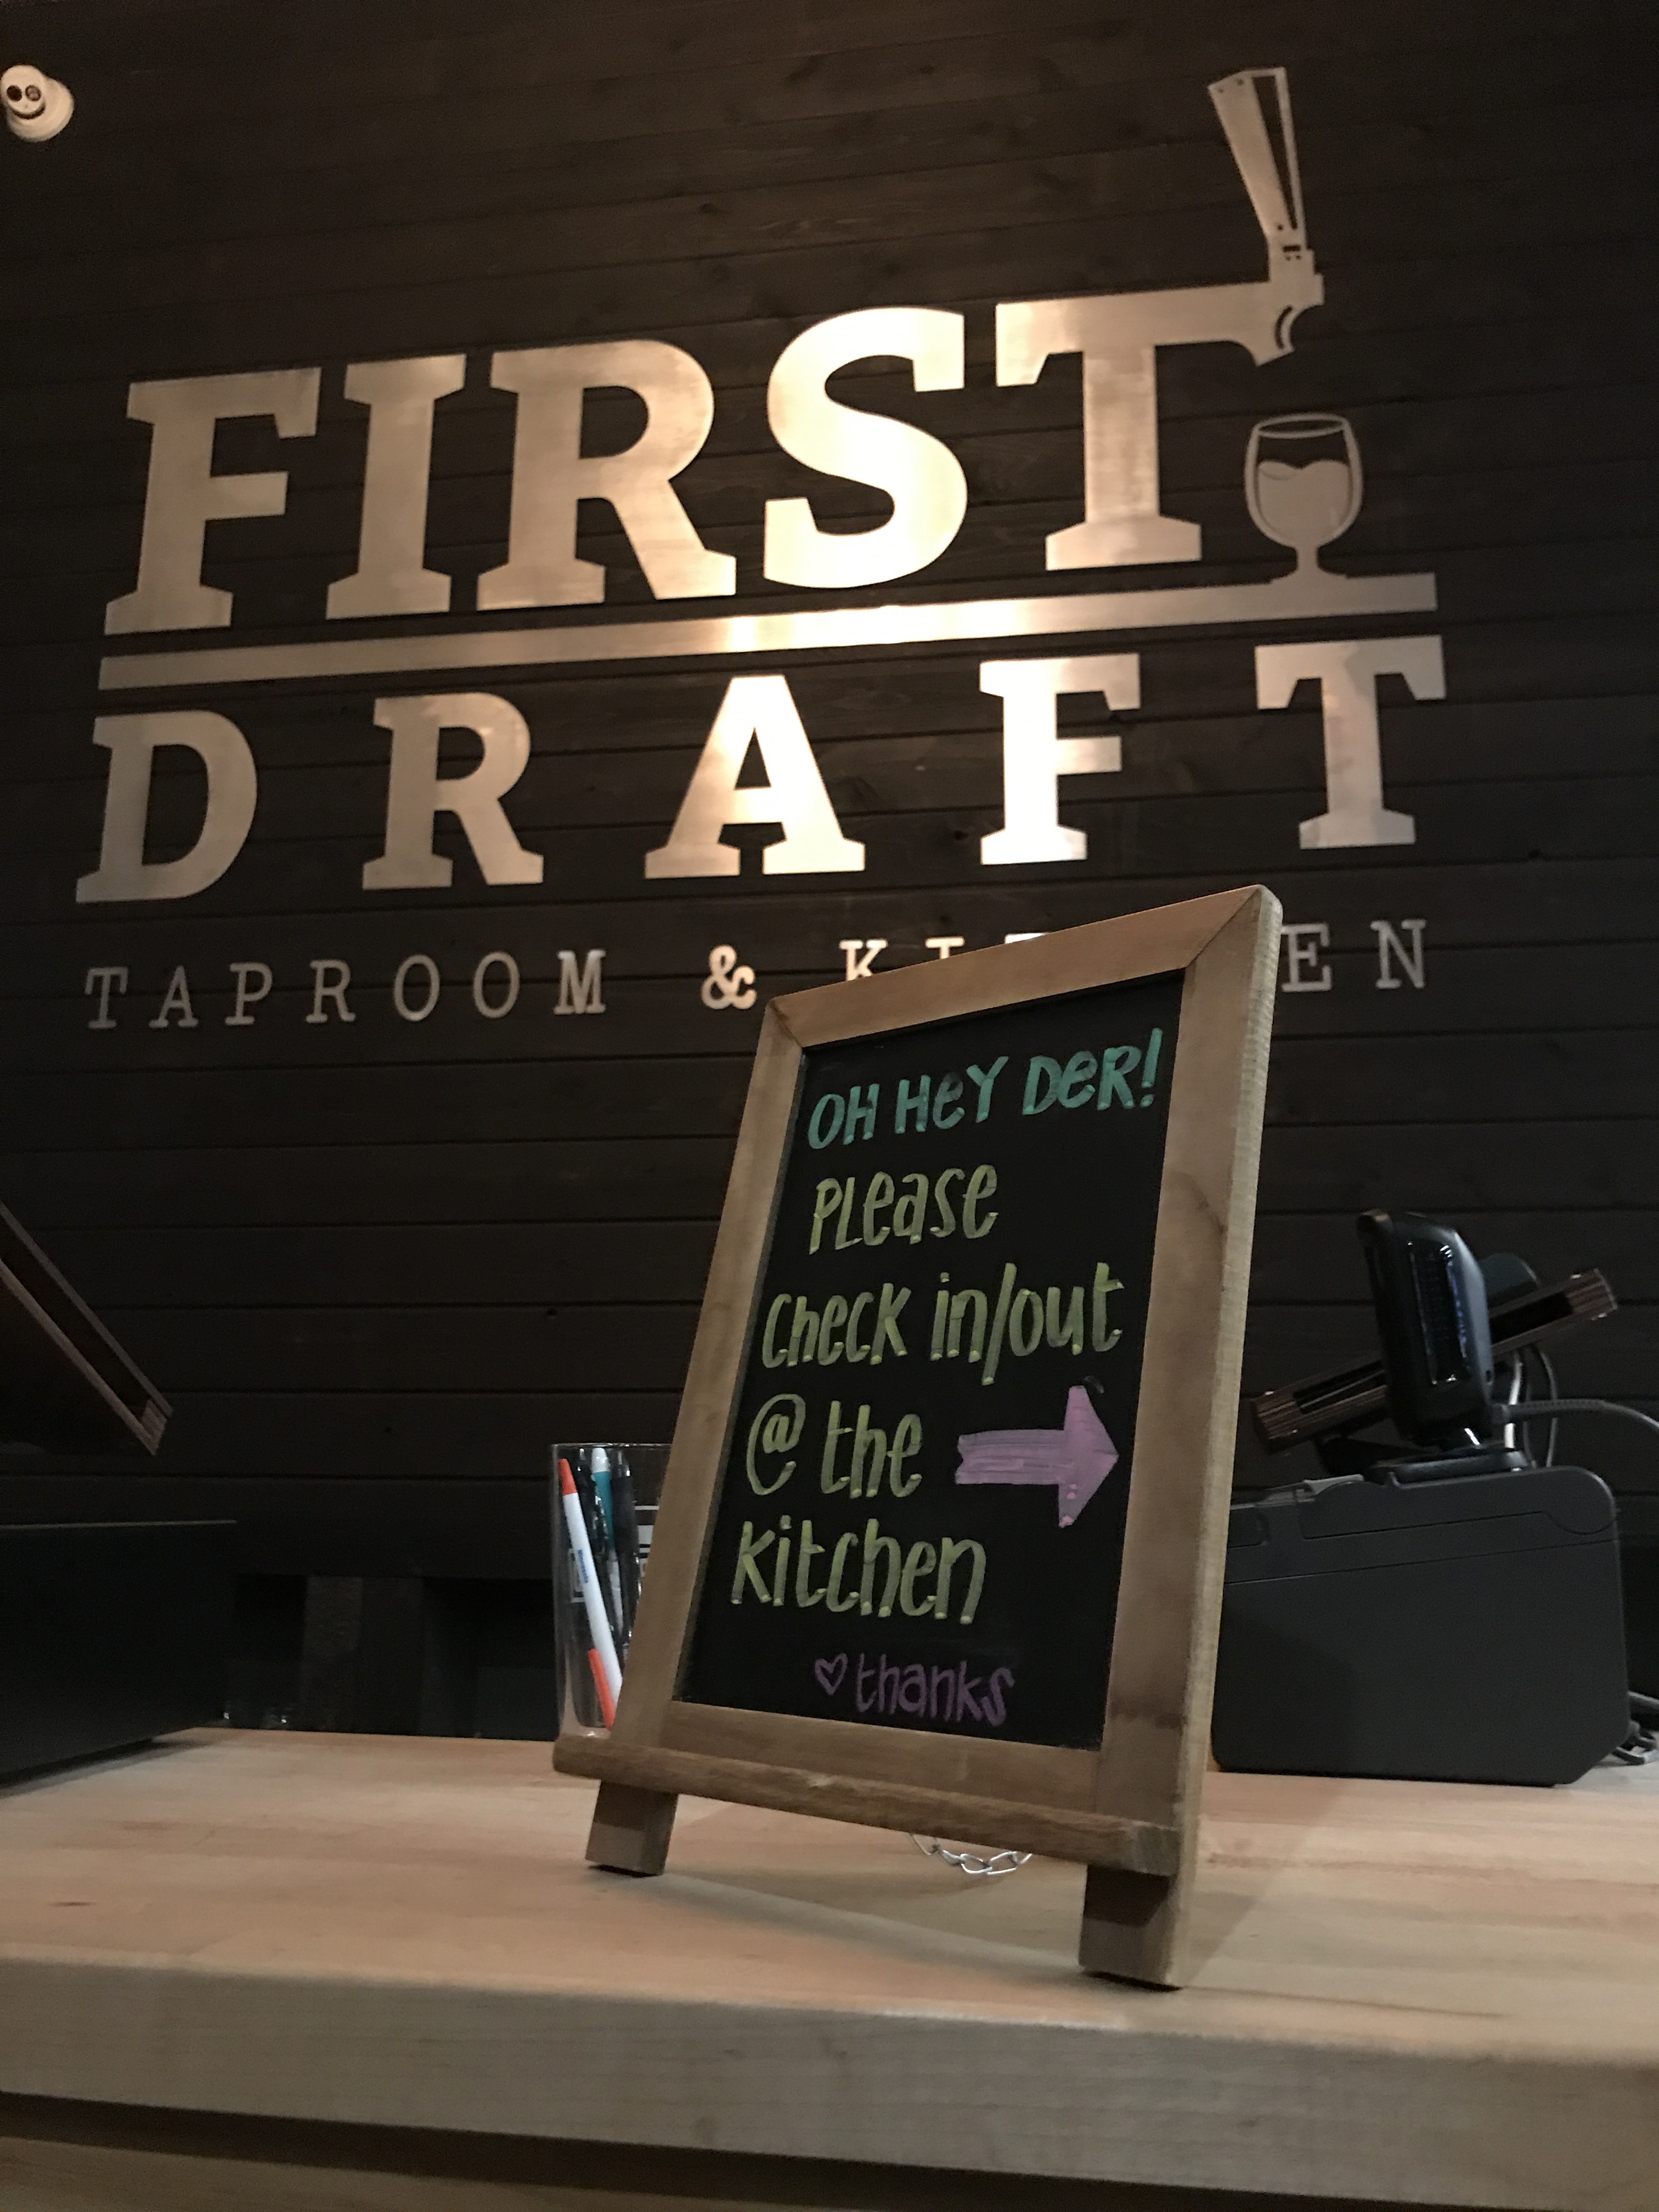 FIRST
DRAFT
TAPROOM & KITCHEN
OH HEY DER!
PLease
Check in/out
@ the
kitchen
♡ thanks